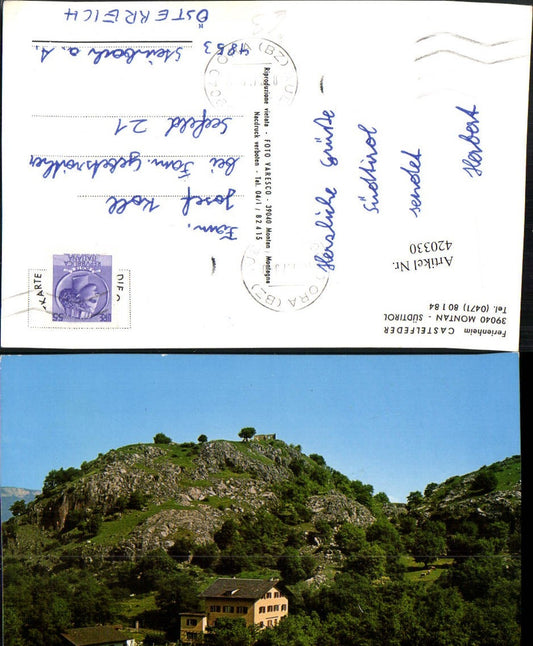 Ferienheim CASTELFEDER
39040 MONTAN - SÜDTIROL
Tel. (0471) 80184
Artikel Nr.
420330
Herzliche Grüße
Südtirol
sendet
Herbert
Riproduzione vietata - FOTO VARESCO - 39040 Montan Montagna
Nachdruck verboten - Tel. 0471/82415
ORA (BZ)
Fam.
Josef Koll
bei Fam.
Seefeld 21
4853
Steinbach a. A.
ÖSTERREICH
REPUBBLICA
ITALIANA